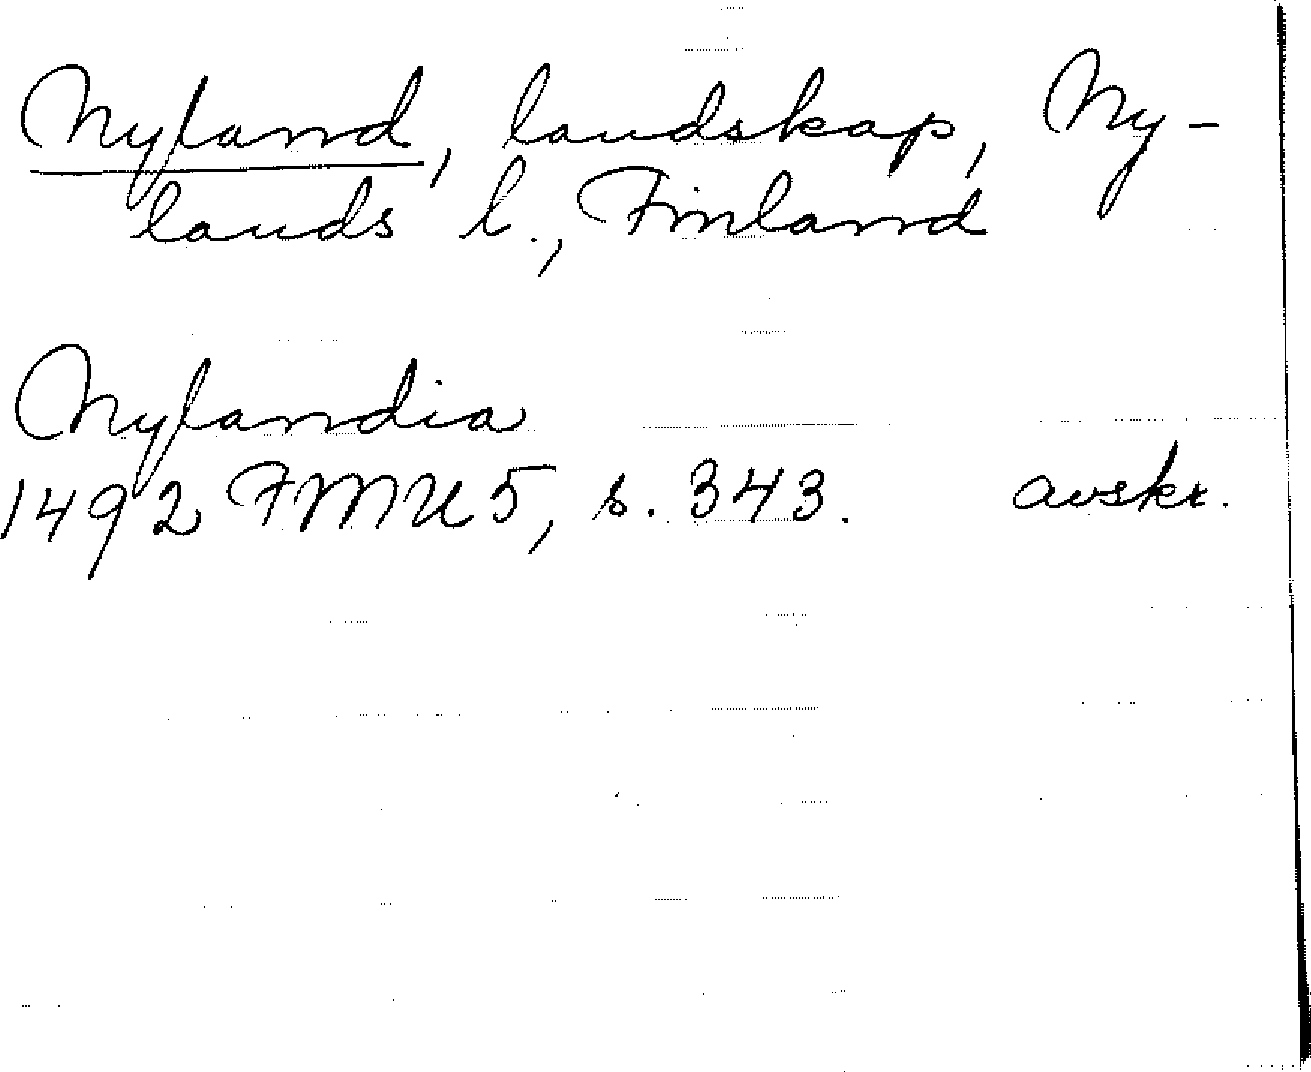 Nyland, landskap, Ny-
lands l., Finland
Nylandia
1492 FMU 5, s. 343. avskr.